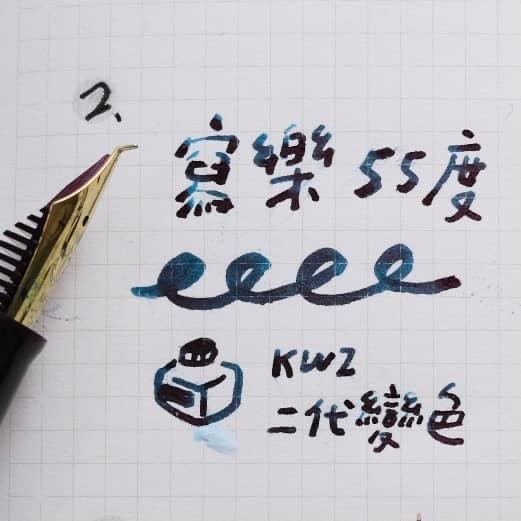 2、
寫樂 55度
KWZ
二代變色